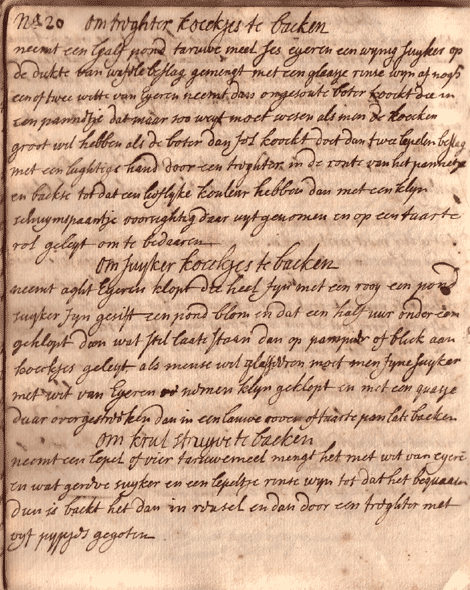 No 20 om troghter koeckjes te backen
neemt een half pond taruwe meel ses eyeren een wynig suyker op
de dickte van wafele beslag gemengt met een glaasje rinse wyn of nogh
een of twee witte van Eyeren neemt dan ongesoute boter koockt die in
een pannetje dat maar soo wyt moet wesen als men de koecken
groot wil hebben als de boter dan tol koockt doet dan twee lepelen beslag
met een lughtige hand door een troghter in de ronte van het pannetje
en backse tot dat een lieflyke kouleur hebben dan met een klyn
schuymspaantje voorsightig daar uyt genomen en op een taarte
rol geleyt om te bedaaren
om suyker koeckjes te backen
neemt aght Eyeren klopt die heel fyn met een roey een pond
suyker fyn gesift een pond blom en dat een half uur onder een
geklopt dan wat stil laate staan dan op pampier of bleck aan
koeckjes geleyt als mense wil glasseren moet men fyne suyker
met wit van Eyeren nemen klyn geklopt en met een quasje
daar over gestreeken dan in een lauwe ooven of taarte pan late backen
om krul struyve te backen
neemt een lepel of vier taruwemeel mengt het met wit van eyere
en wat gereve suyker en een lepeltje rinse wyn tot dat het bequaam
dun is backt het dan in reusel en dan door een treghter met
vyf pypjes gegoten